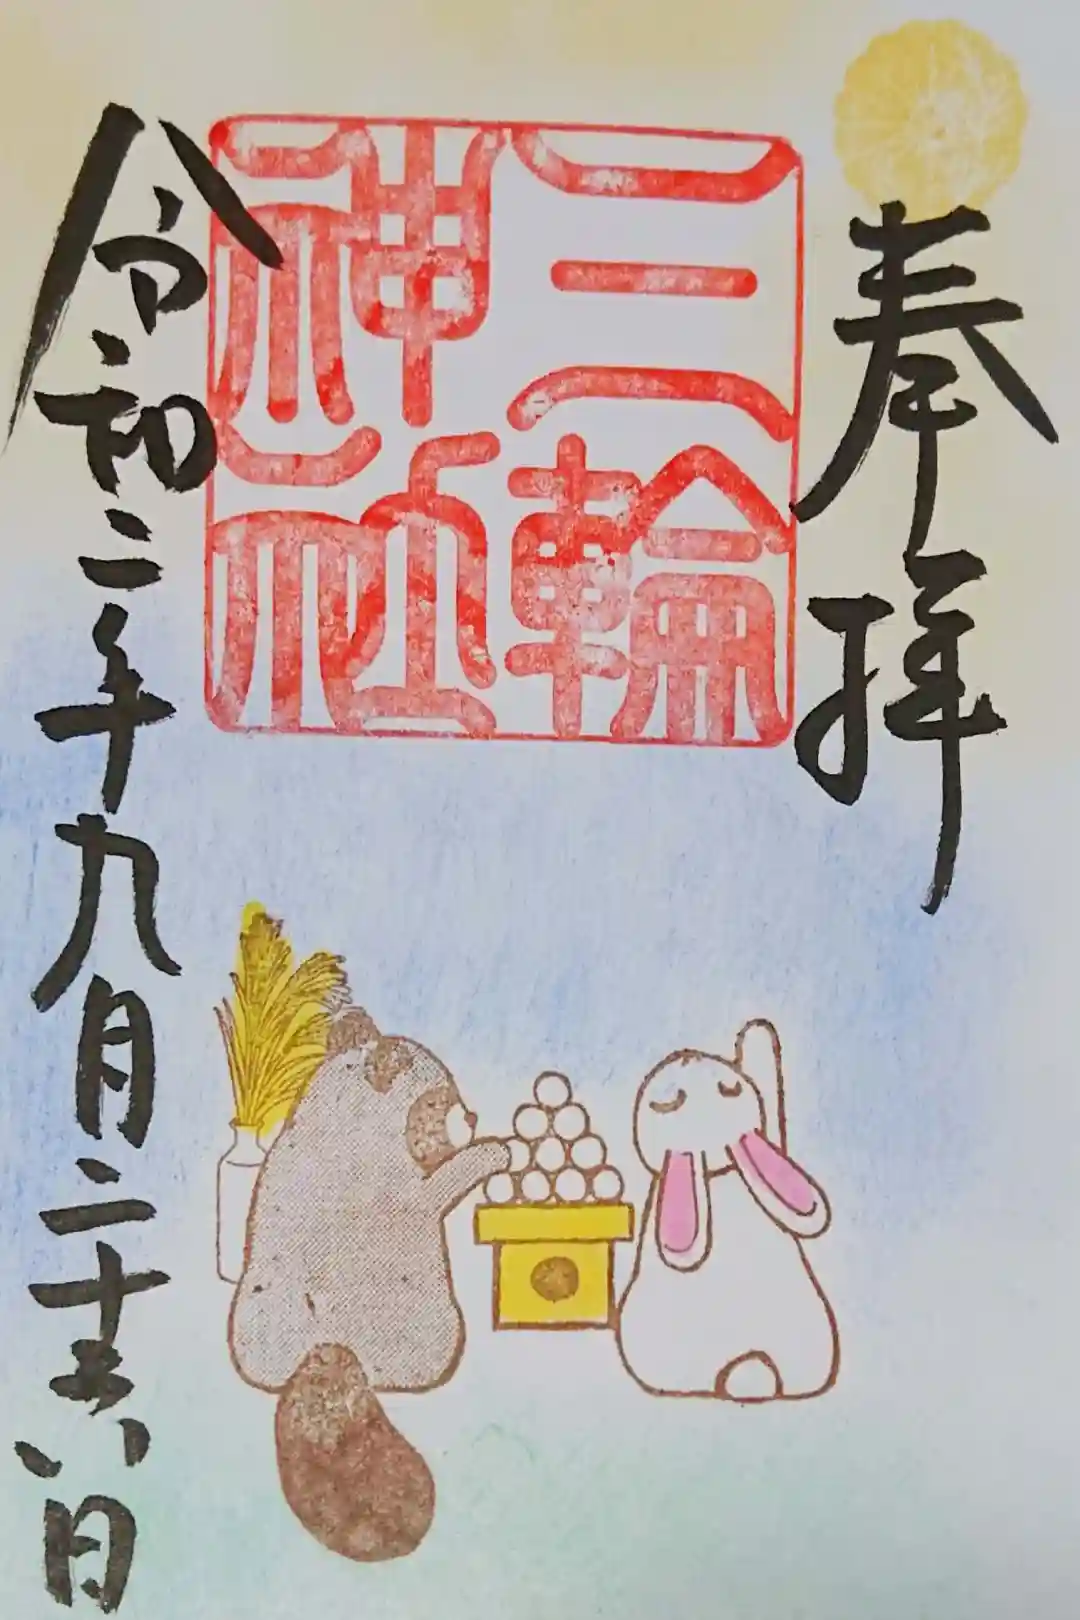 奉拝
三輪
神社
令和二年九月二十六日